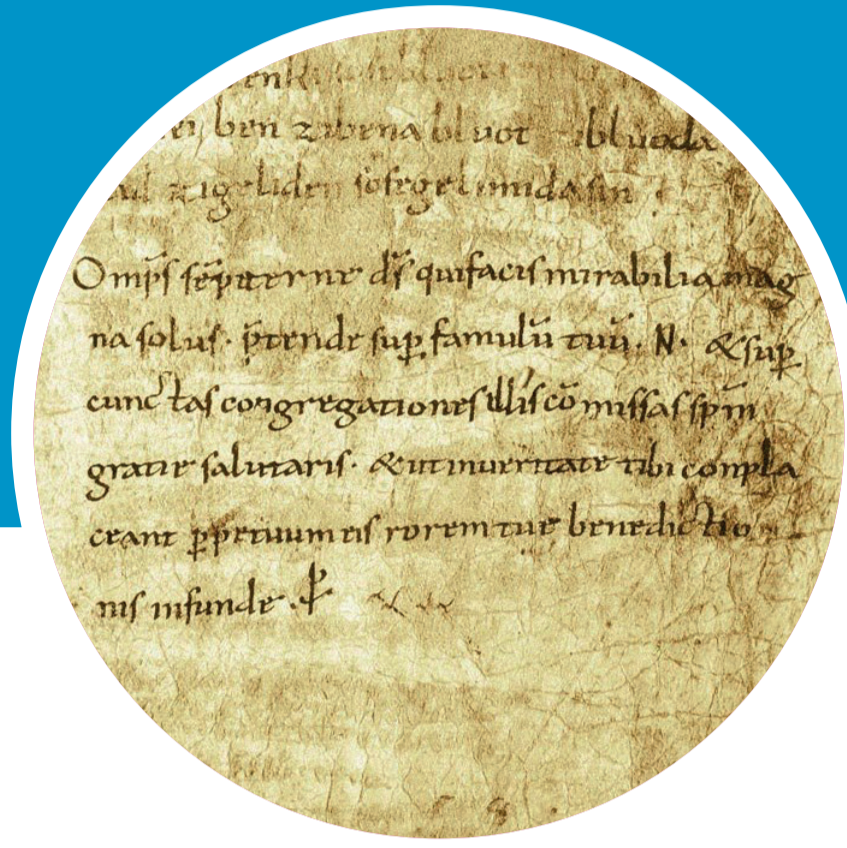 ben zi bena bluot zi bluoda
lid zi geliden sose gelimida sin
Omp̄s sēpiterne d̄s qui facis mirabilia mag
na solus· p̄tende sup̱ famulū tuū· N· & sup̱
cunctas congregationes illis cōmissas spm̄
gratie salutaris· & ut in ueritate tibi conpla
ceant p̱petuum eis rorem tue benedictio
nis infunde· ꝑ